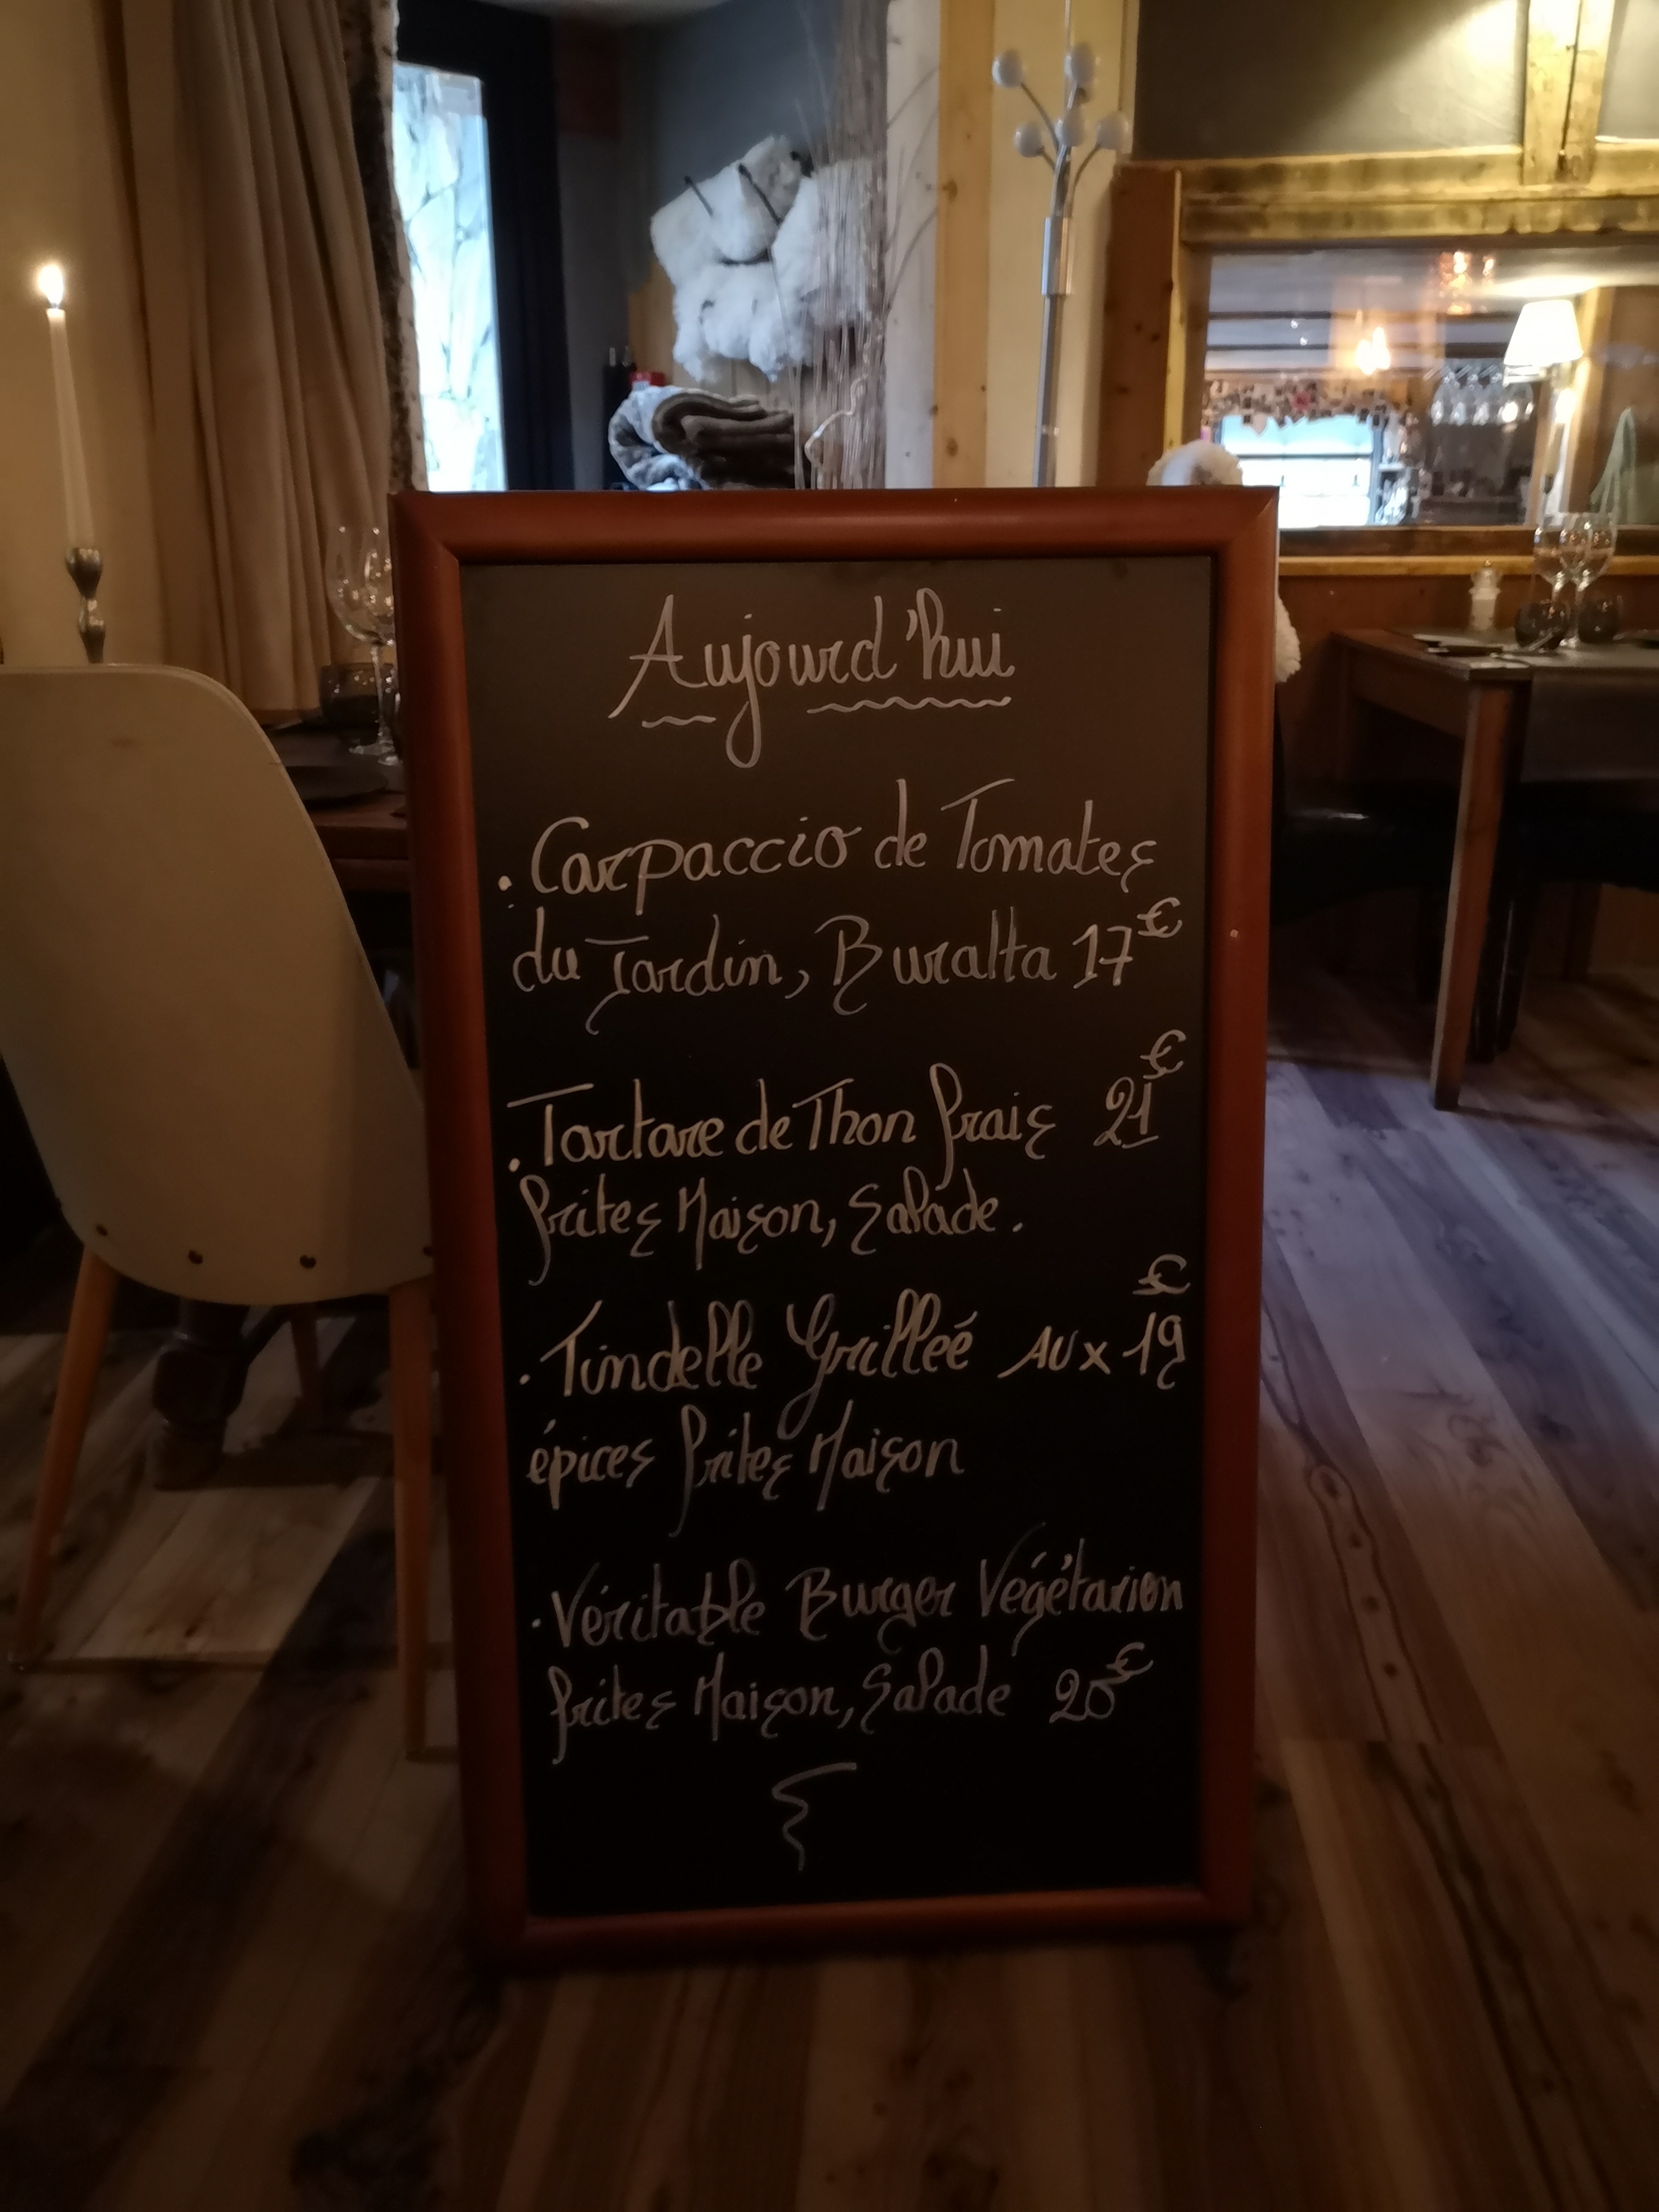 Aujourd'hui
. Carpaccio de Tomates
du Jardin, Buratta 17€
. Tartare de Thon frais 21€
frites Maison, Salade.
. Tindelle Grilleé aux 19€
épices frites Maison
. Véritable Burger Végétarien
frites Maison, Salade 20€